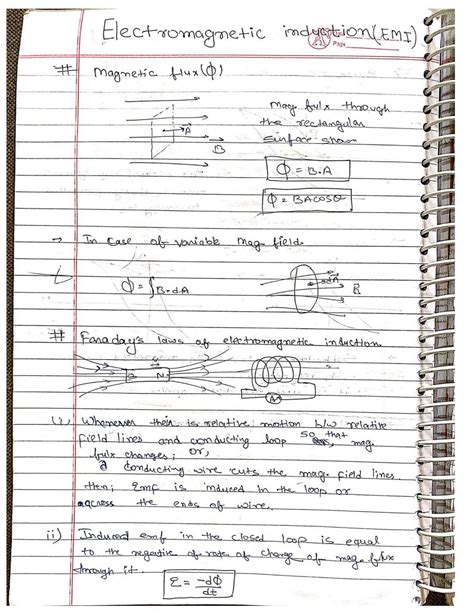 Electromagnetic induction (EMI)
Page
# Magnetic flux (Φ)
Mag. fulx through
the rectangular
surface show
A
B
Φ = B.A
Φ = BA cosθ
→ In case of variable mag. field.
Φ = ∫B.dA
dA
B
# Faraday's laws of electromagnetic induction
S N
A
(i) Whenever their is relative motion b/w relative
field lines and conducting loop so that mag.
fulx changes; or,
a conducting wire cuts the mag. field lines
then; Emf is induced in the loop or
across the ends of wire.
ii) Induced emf in the closed loop is equal
to the negative of rate of change of mag. fulx
through it.
Σ = -dΦ/dt